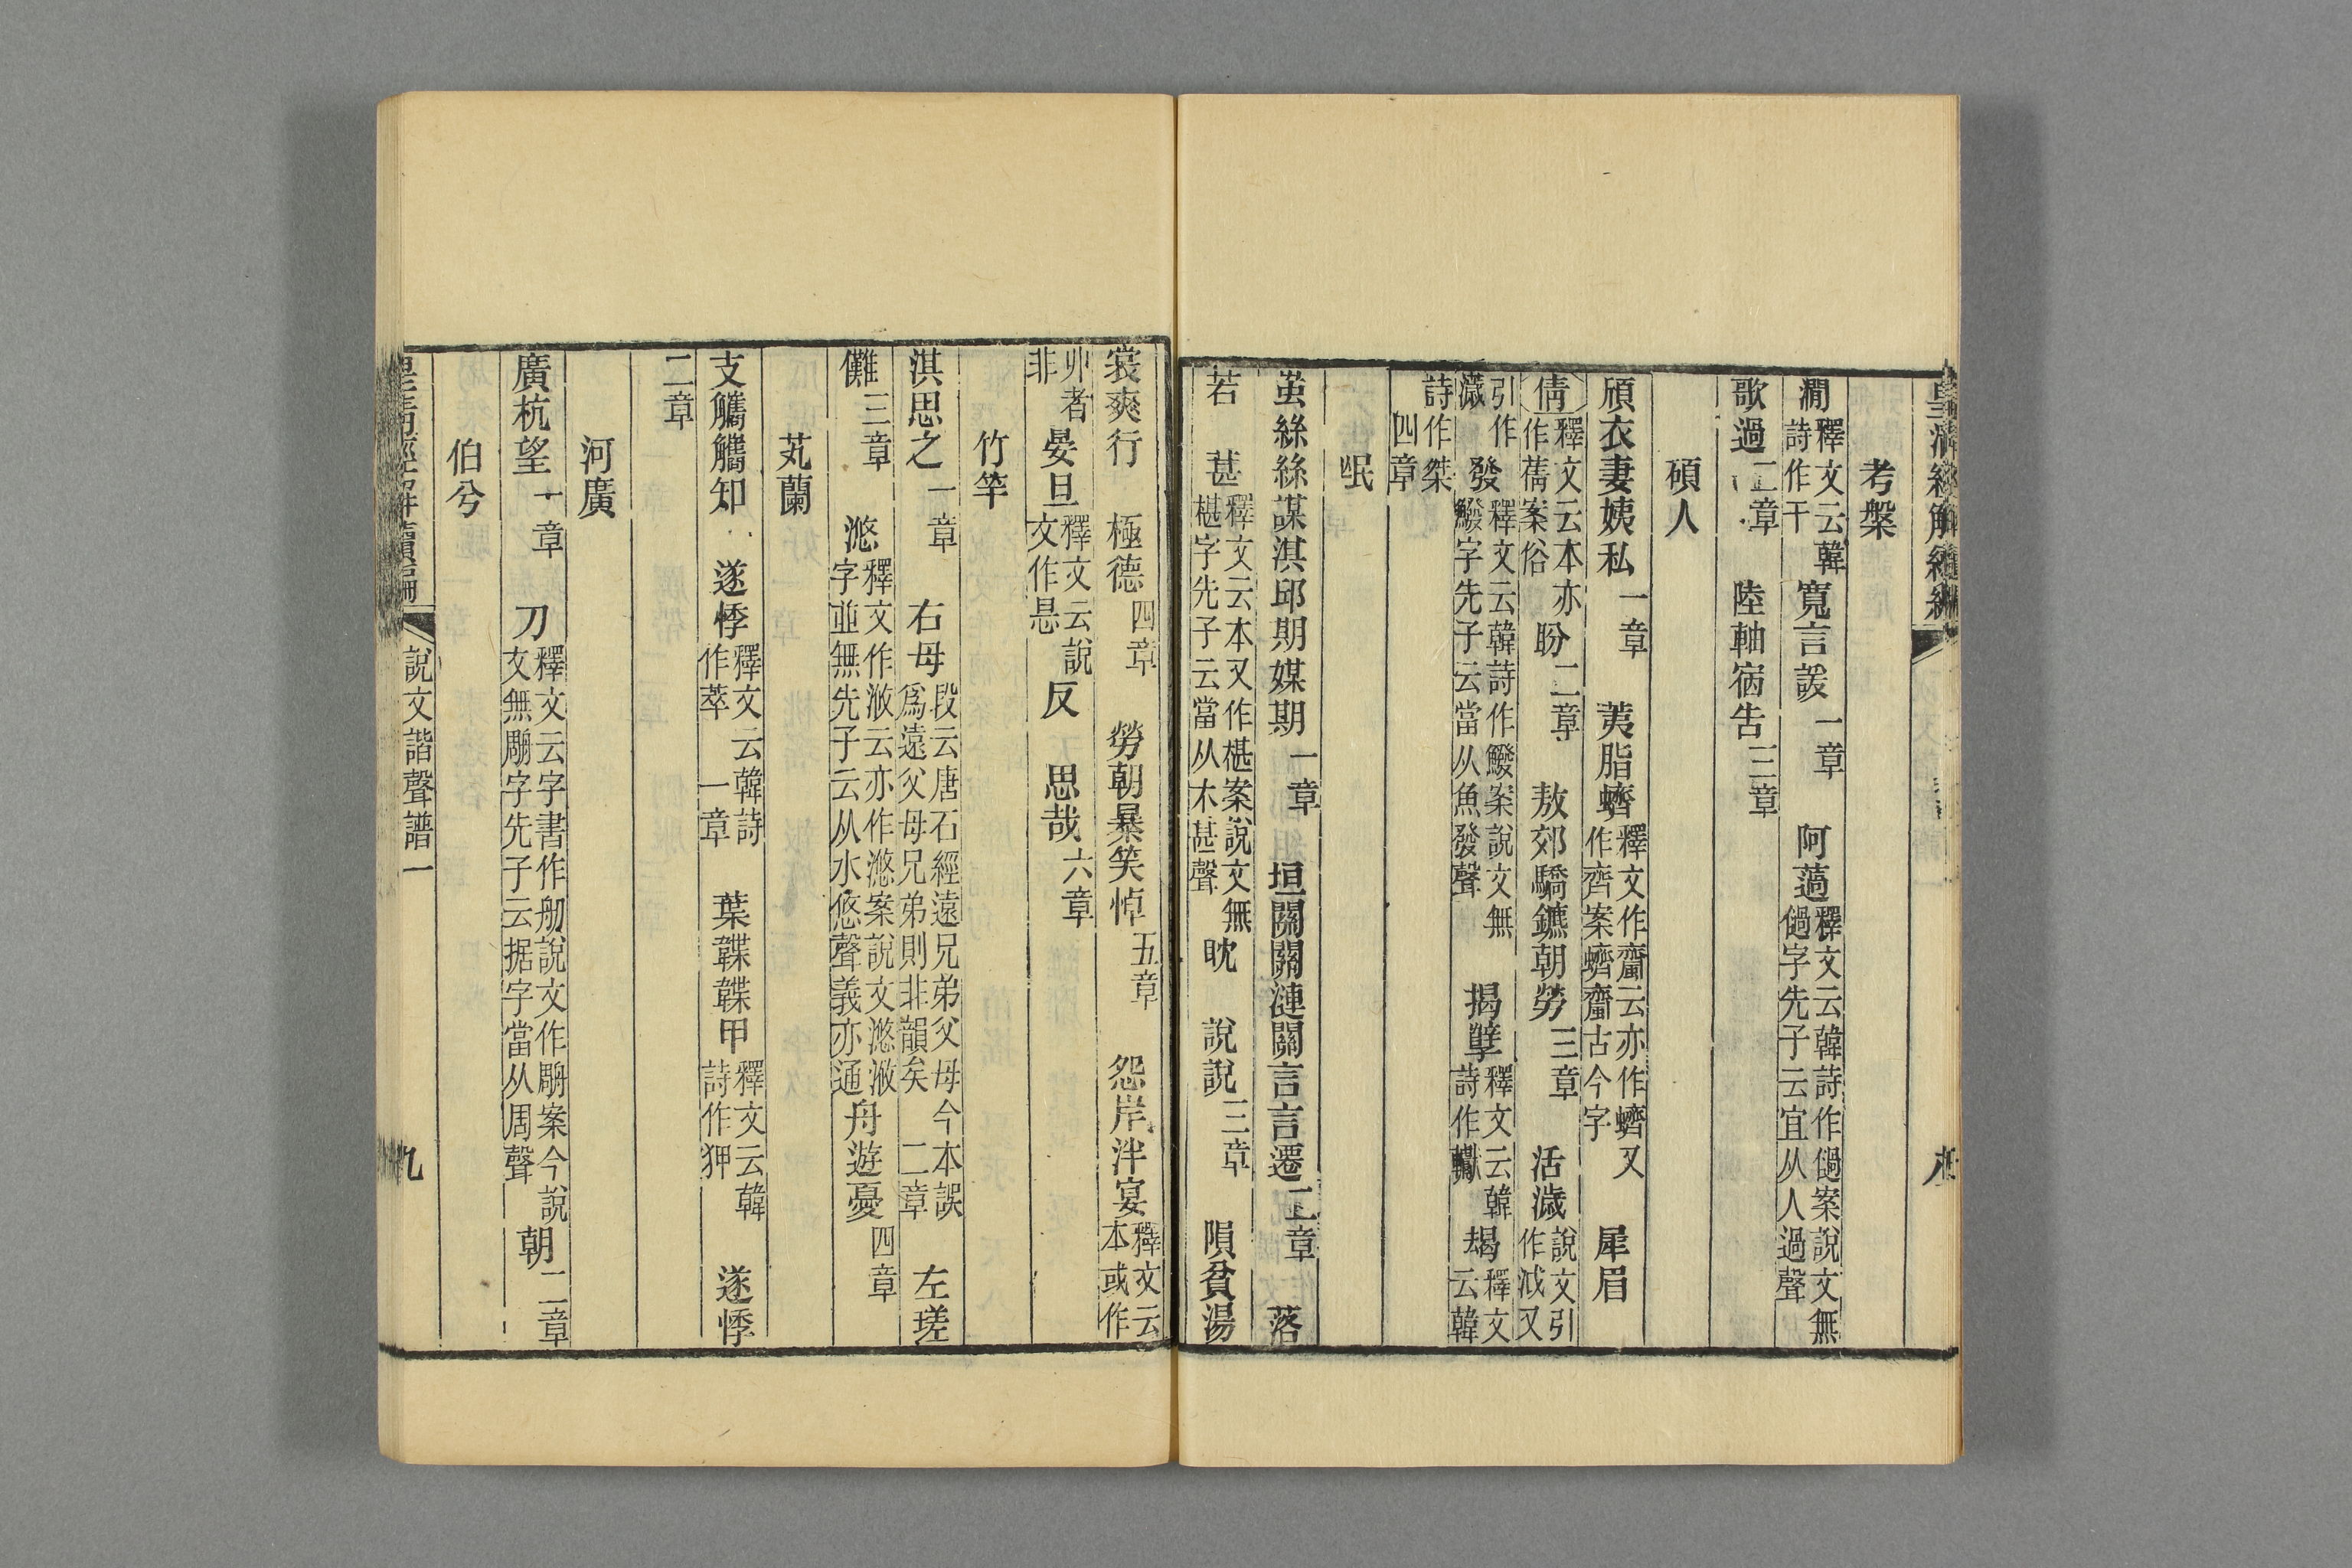 皇清經解續編
考槃
澗釋文云韓詩作干寬言諼一章　阿薖釋文云韓詩作㗻案說文無㗻字先子云宜从人過聲
歌過二章　陸軸宿告三章
碩人
頎衣妻姨私一章　荑脂蠐釋文作齏云亦作蠐又作齊案蠐齏古今字　犀眉
倩釋文云本亦作蒨案俗盼二章　敖郊驕鑣朝勞三章　活濊說文引作泧又
引作濊發釋文云韓詩作鱍案說文無鱍字先子云當从魚發聲　揭孽釋文云韓詩作钀朅釋文云韓
詩作桀四章
氓
蚩絲絲謀淇邱期媒期一章　垣關關漣關言言遷二章　落
若　葚釋文云本又作椹案說文無椹字先子云當从木甚聲耽　說說三章　隕貧湯
裳爽行　極德四章　勞朝暴笑悼五章　怨岸泮宴釋文云本或作
丱者非晏旦釋文云說文作悬反　思哉六章
竹竿
淇思之一章　右母段云唐石經遠兄弟父母今本誤爲遠父母兄弟則非韻矣二章　左瑳
儺三章　滺釋文作浟云亦作滺案說文滺浟字並無先子云从水悠聲義亦通舟遊憂四章
芄蘭
支觿觿知　遂悸釋文云韓詩作萃一章　葉韘韘甲釋文云韓詩作狎　遂悸
二章
河廣
廣杭望一章　刀釋文云字書作舠說文作䑩案今說文無䑩字先子云据字當从周聲朝二章
伯兮
皇清經解續編　說文諧聲譜一　九